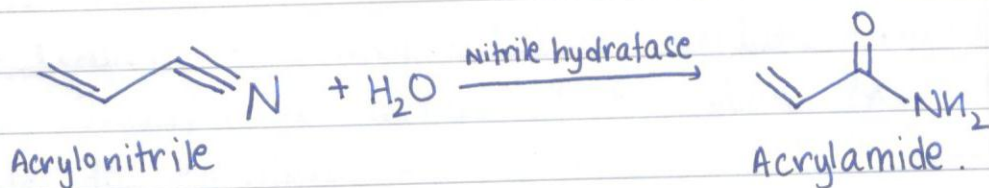 Nitrile hydratase
N + H₂O
O
NH₂
Acrylonitrile
Acrylamide.